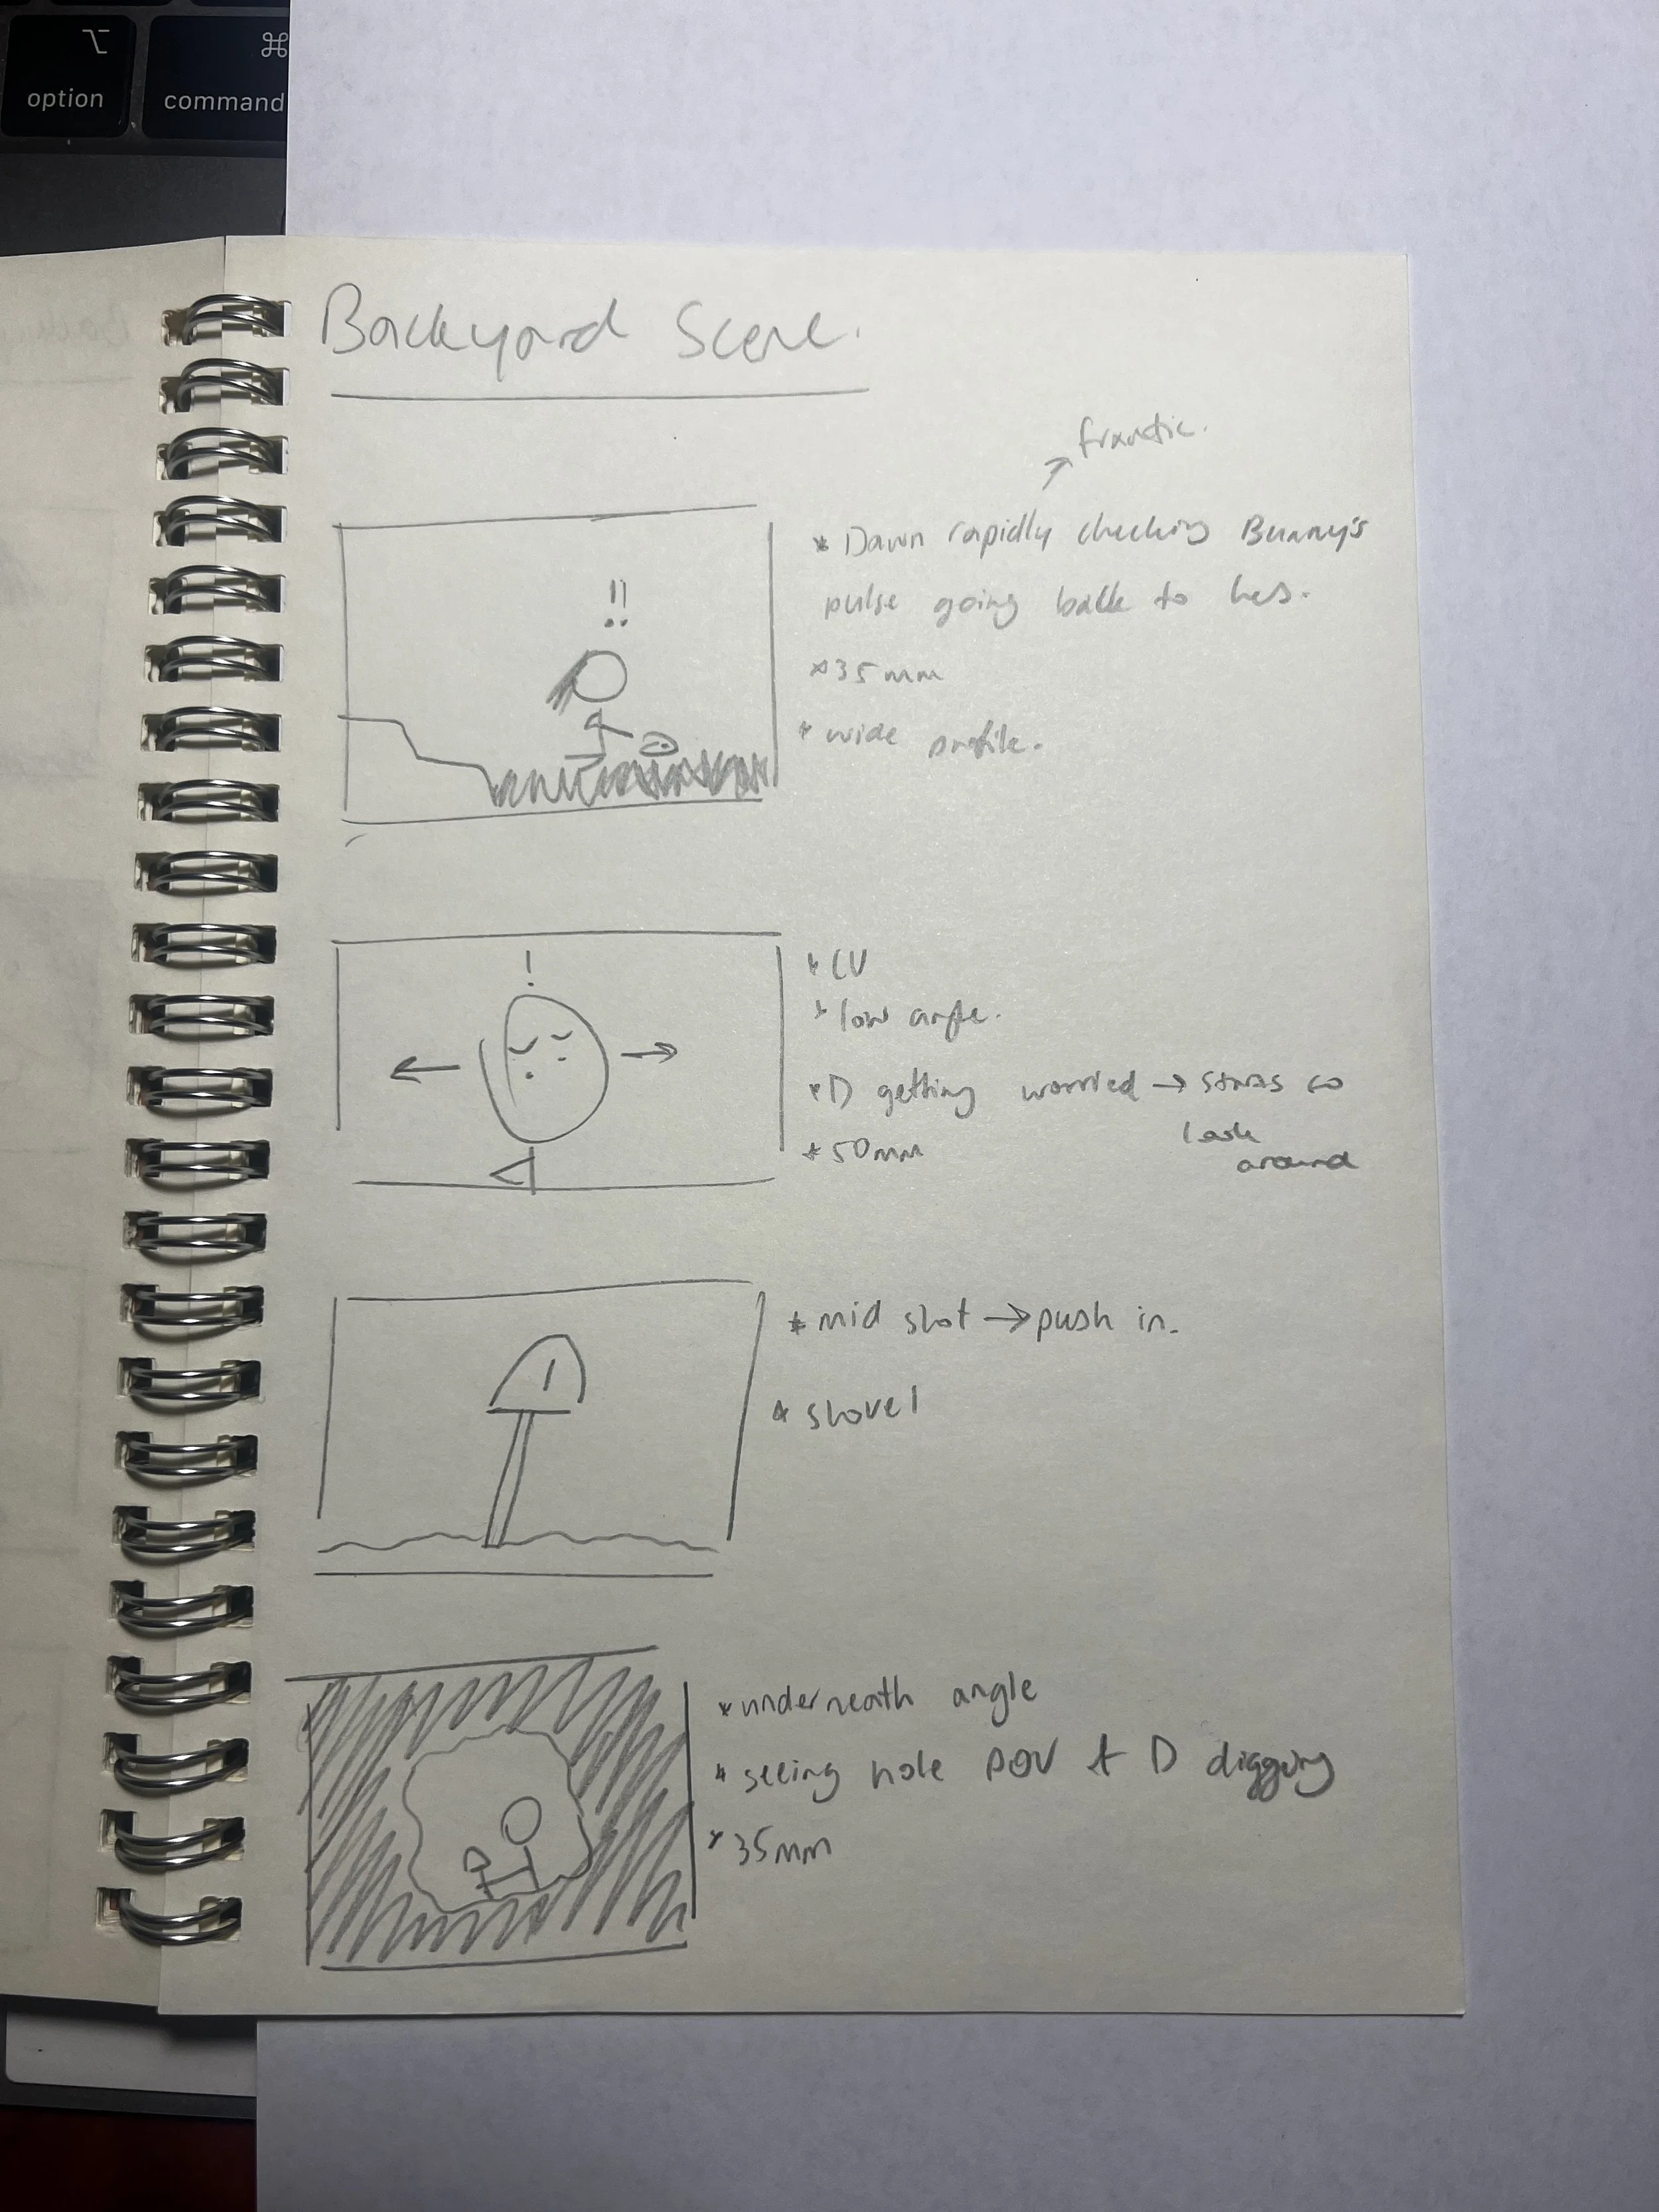 ⌥ ⌘
option command
Backyard Scene.
→ frantic.
* Dawn rapidly checking Bunny's
pulse going back to hers.
!!
* 35mm
* wide profile.
!
* CU
* low angle.
← →
* D getting worried → starts to
look
around
* 50mm
* mid shot → push in.
* shovel
* underneath angle
* seeing hole POV & D digging
* 35mm